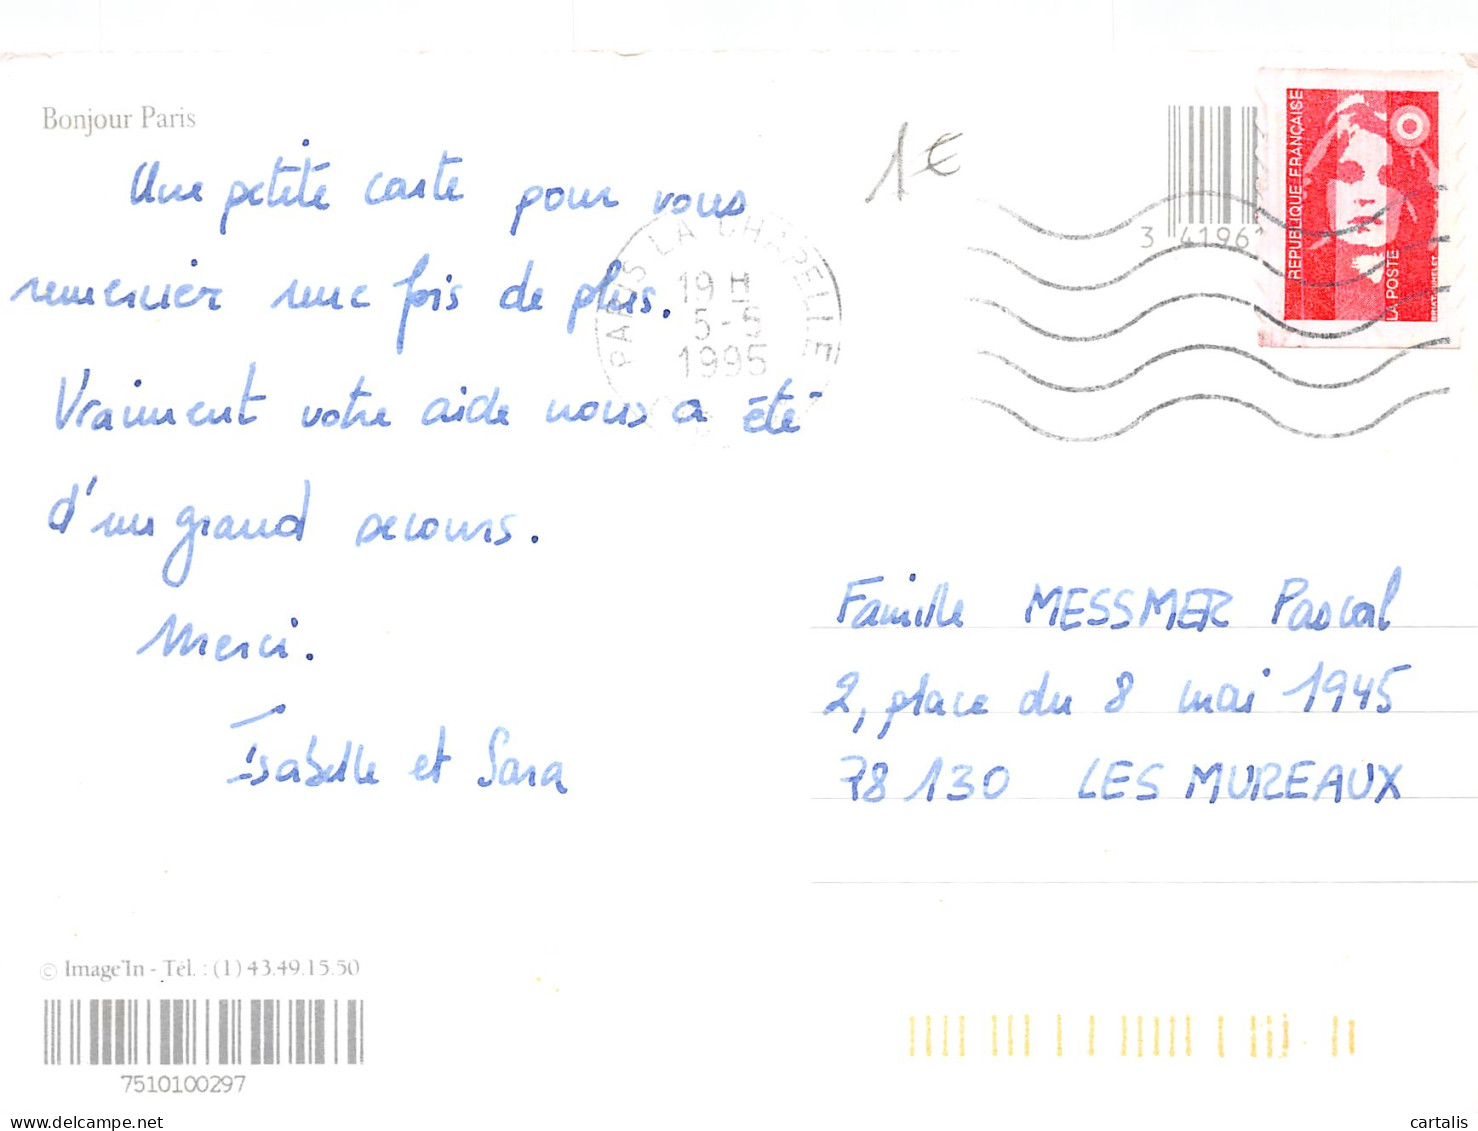 Bonjour Paris
1€
Une petite carte pour vous
remercier une fois de plus.
Vraiment votre aide nous a été
d'un grand secours.
Merci.
Isabelle et Sara
PARIS LA CHAPELLE
19 H
5-5
1995
3 4196
REPUBLIQUE FRANÇAISE
LA POSTE
Famille MESSMER Pascal
2, place du 8 mai 1945
78130 LES MUREAUX
© Image'In - Tél. : (1) 43.49.15.50
7510100297
cartalis